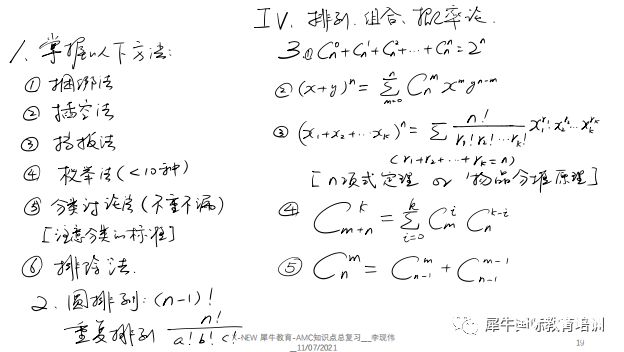 IV. 排列.组合、概率论.
1. 掌握以下方法:
① 捆绑法
② 插空法
③ 挡板法
④ 枚举法(<10种)
⑤ 分类讨论法(不重不漏)
[注意分类的标准]
⑥ 排除法.
2. 圆排列: (n-1)!
重复排列 n! / a! b! c!
3. ① C_n^0 + C_n^1 + C_n^2 + ... + C_n^n = 2^n
② (x+y)^n = ∑_{m=0}^n C_n^m x^m y^{n-m}
③ (x_1+x_2+...x_k)^n = ∑ n! / r_1! r_2! ... r_k! x_1^{r_1} x_2^{r_2} ... x_k^{r_k}
(r_1+r_2+...+r_k=n)
[n项式定理 or 物品分堆原理]
④ C_{m+n}^k = ∑_{i=0}^k C_m^i C_n^{k-i}
⑤ C_n^m = C_{n-1}^m + C_{n-1}^{m-1}
-NEW 犀牛教育-AMC知识点总复习__李现伟
_11/07/2021
犀牛国际教育培训
19